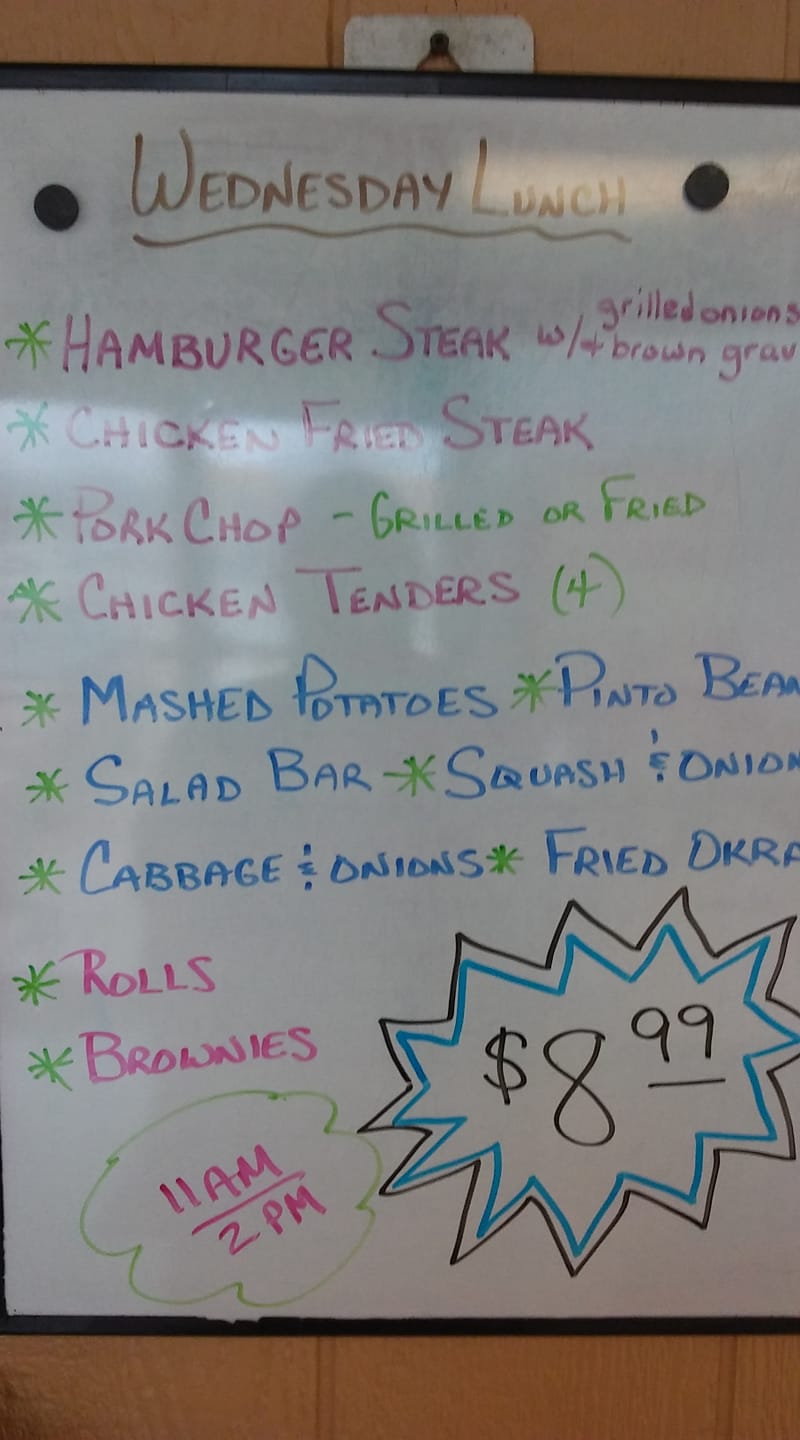 WEDNESDAY LUNCH
* HAMBURGER STEAK w/ grilled onions
+ brown grav
* CHICKEN FRIED STEAK
* PORK CHOP - GRILLED OR FRIED
* CHICKEN TENDERS (4)
* MASHED POTATOES * PINTO BEAN
* SALAD BAR * SQUASH & ONION
* CABBAGE & ONIONS * FRIED OKRA
* ROLLS
* BROWNIES
$8 99
11AM
2PM